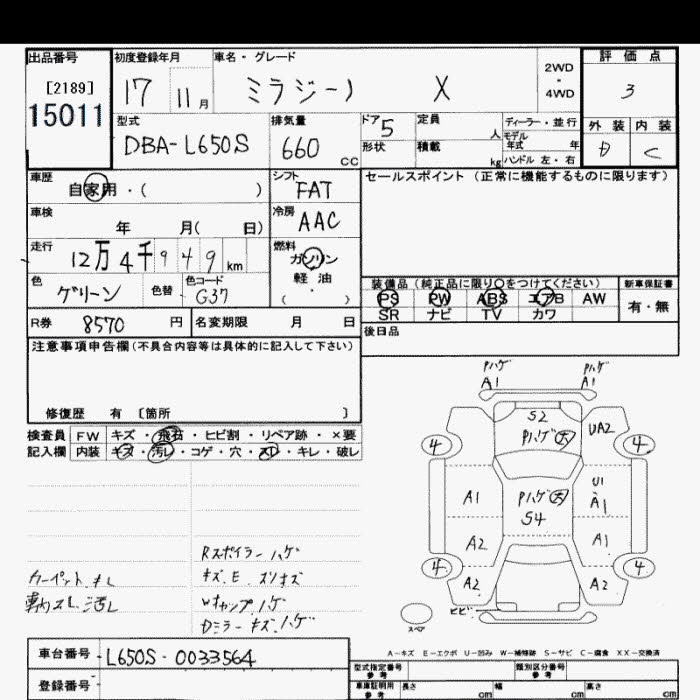 出品番号
[2189]
15011
初度登録年月
17 11月
車名・グレード
ミラジーノ X
2WD
・
4WD
評価点
3
型式
DBA-L650S
排気量
660 CC
ドア 5
形状
定員 人
積載 kg
ディーラー・並行
モデル年式 年
ハンドル 左・右
外装 内装
D C
車歴
自家用・( )
シフト
FAT
セールスポイント (正常に機能するものに限ります)
車検
年 月( 日)
冷房
AAC
走行
12万4千949km
燃料
ガソリン
軽油
( ・ )
色
グリーン
色替
色コード
G37
装備品 (純正品に限り○をつけてください)
PS PW ABS エアB AW
SR ナビ TV カワ
新車保証書
有・無
R券 8570 円
名変期限 月 日
後日品
注意事項申告欄(不具合内容等は具体的に記入して下さい)
修復歴 有 〔箇所 〕
検査員 FW キズ・飛石・ヒビ割・リペア跡・×要
記入欄 内装 キズ・汚レ・コゲ・穴・スレ・キレ・破レ
Pハゲ Pハゲ
A1 A1
S2
Pハゲ大
UA2
4 4
A1
Pハゲ大
S4
U1
A1
A2 A1
4 4
A2 A2
ヒビ
スペア
Rスポイラー ハゲ
カーペット キレ
キズ.E. スリキズ
車内スレ 汚レ
Wキャップ ハゲ
Dミラー キズ.ハゲ
A-キズ E-エクボ U-凹み W-補修跡 S-サビ C-腐食 XX-交換済
車台番号 L650S-0033564
登録番号
型式指定番号
参考
類別区分番号
参考
車庫証明用
参考
長さ cm
幅 cm
高さ cm